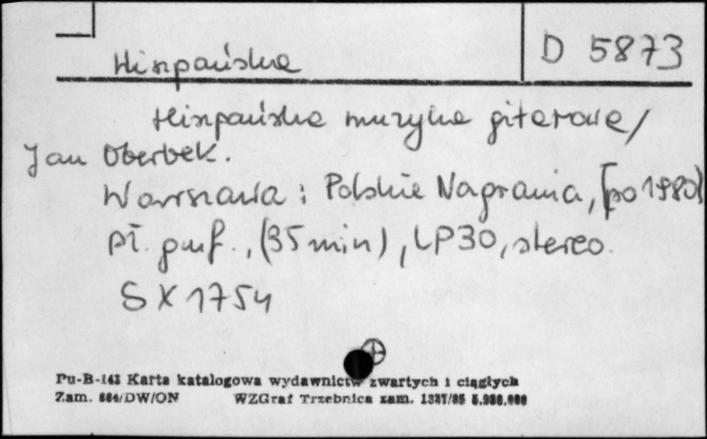 Hiszpańska
D 5873
Hiszpańska muzyka gitarowa /
Jan Oberbek.
Warszawa : Polskie Nagrania, [po 1980]
pł. gramof., (35 min), LP30, stereo.
SX 1754
Pu-B-143 Karta katalogowa wydawnictw zwartych i ciągłych
Zam. 664/DW/ON WZGraf Trzebnica zam. 1327/85